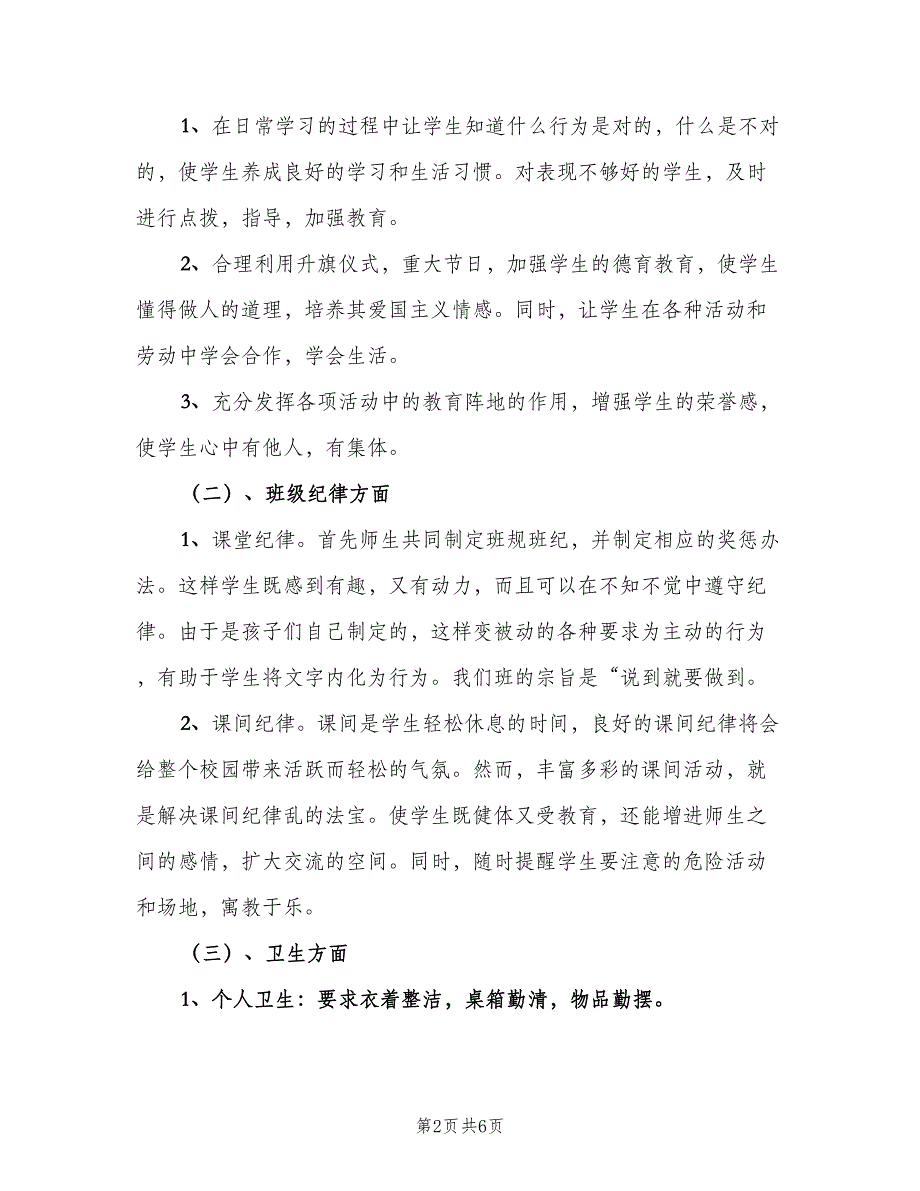 1、在日常学习的过程中让学生知道什么行为是对的，什么是不对
的，使学生养成良好的学习和生活习惯。对表现不够好的学生，及时
进行点拨，指导，加强教育。
2、合理利用升旗仪式，重大节日，加强学生的德育教育，使学生
懂得做人的道理，培养其爱国主义情感。同时，让学生在各种活动和
劳动中学会合作，学会生活。
3、充分发挥各项活动中的教育阵地的作用，增强学生的荣誉感，
使学生心中有他人，有集体。
（二）、班级纪律方面
1、课堂纪律。首先师生共同制定班规班纪，并制定相应的奖惩办
法。这样学生既感到有趣，又有动力，而且可以在不知不觉中遵守纪
律。由于是孩子们自己制定的，这样变被动的各种要求为主动的行为
，有助于学生将文字内化为行为。我们班的宗旨是“说到就要做到。
2、课间纪律。课间是学生轻松休息的时间，良好的课间纪律将会
给整个校园带来活跃而轻松的气氛。然而，丰富多彩的课间活动，就
是解决课间纪律乱的法宝。使学生既健体又受教育，还能增进师生之
间的感情，扩大交流的空间。同时，随时提醒学生要注意的危险活动
和场地，寓教于乐。
（三）、卫生方面
1、个人卫生：要求衣着整洁，桌箱勤清，物品勤摆。
第2页 共6页